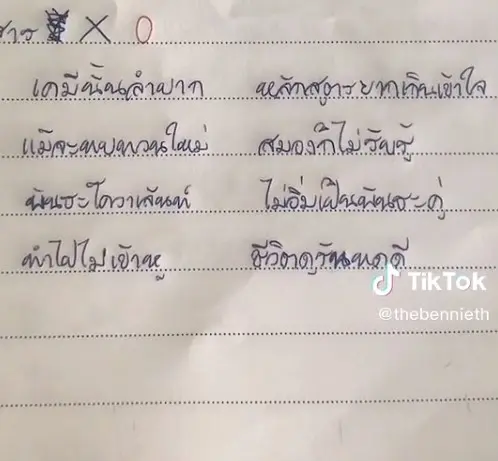 สาร X 0
เคมีนั้นลำบาก หลักสูตรยากเกินเข้าใจ
แม้จะทบทวนใหม่ สมองก็ไม่รับรู้
พันธะโควาเลนท์ ไม่อิ่มเป็นพันธะคู่
ทำไมไม่เข้าหู ชีวิตดูรันทดดี
TikTok
@thebennieth